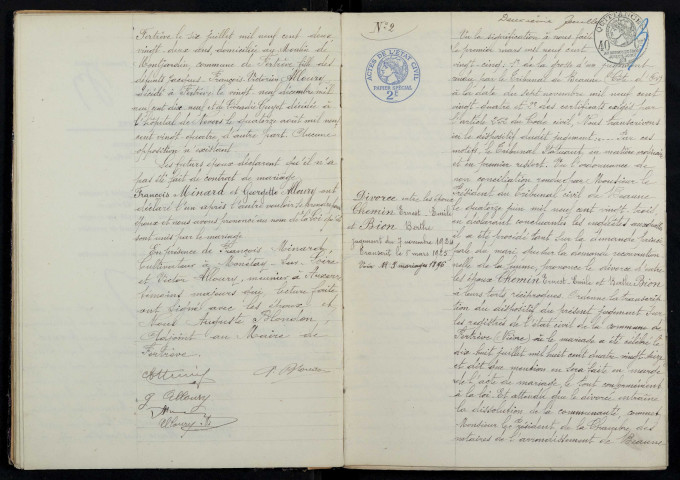 Fertrève le six juillet mil neuf cent deux
vingt deux ans, domiciliée au Moulin de
Montjardin, commune de Fertrève fille des
défunts Jacques François Victorien Alloury
décédé à Fertrève le vingt neuf décembre mil
neuf cent dix neuf et de Guyot décédée à
l'hôpital de Nevers le quatorze août mil neuf
cent vingt quatre d'autre part. Aucune
opposition n'existant
Les futurs époux déclarent qu'il n'a
pas été fait de contrat de mariage
François Minard et Alloury ont
déclaré l'un après l'autre vouloir se prendre pour
époux et nous avons prononcé au nom de la loi qu'ils
sont unis par le mariage.
En présence de François Minard,
cultivateur à
et Victor Alloury, meunier à
témoins majeurs qui, lecture faite
ont signé avec les époux et
Nous Auguste Blondon,
Adjoint au Maire de
Fertrève.
G Alloury
Nº 2
ACTES DE L'ÉTAT CIVIL
PAPIER SPÉCIAL
2F
Divorce entre les époux
Chemin Ernest Emile
et Bion Berthe
jugement du 7 novembre 1924
Transcrit le 1er mars 1925
Deuxième feuillet
40
Vu la signification à nous faite
le premier mars mil neuf cent
vingt-cinq, 1º de la grosse d'un jugement
rendu par le Tribunal de Beaune (Côte d'Or)
à la date du sept novembre mil neuf cent
vingt quatre et 2º des certificats exigés par
l'article 252 du Code civil, Nous transcrivons
ici le dispositif dudit jugement. Par ces
motifs, le Tribunal statuant en matière
et en premier ressort. Vu l'ordonnance de
non conciliation rendue par Monsieur le
Président du Tribunal civil de Beaune
le quatorze juin mil neuf cent vingt trois,
en déclarant concluantes les enquêtes auxquelles
il a été procédé tant sur la demande principale
du mari que sur la demande reconvention
nelle de la femme, prononce le divorce d'entre
les époux Chemin Ernest Emile et Berthe Bion
à leurs torts réciproques. Ordonne la transcrip
tion du dispositif du présent jugement sur
les registres de l'état civil de la commune de
Fertrève (Nièvre) où le mariage a été célébré le
dix huit juillet mil huit cent quatre vingt seize
et dit que mention en sera faite en marge
de l'acte de mariage, le tout conformément
à la loi. Et attendu que le divorce entraîne
la dissolution de la communauté, commet
Monsieur le Président de la Chambre des
notaires de l'arrondissement de Beaune